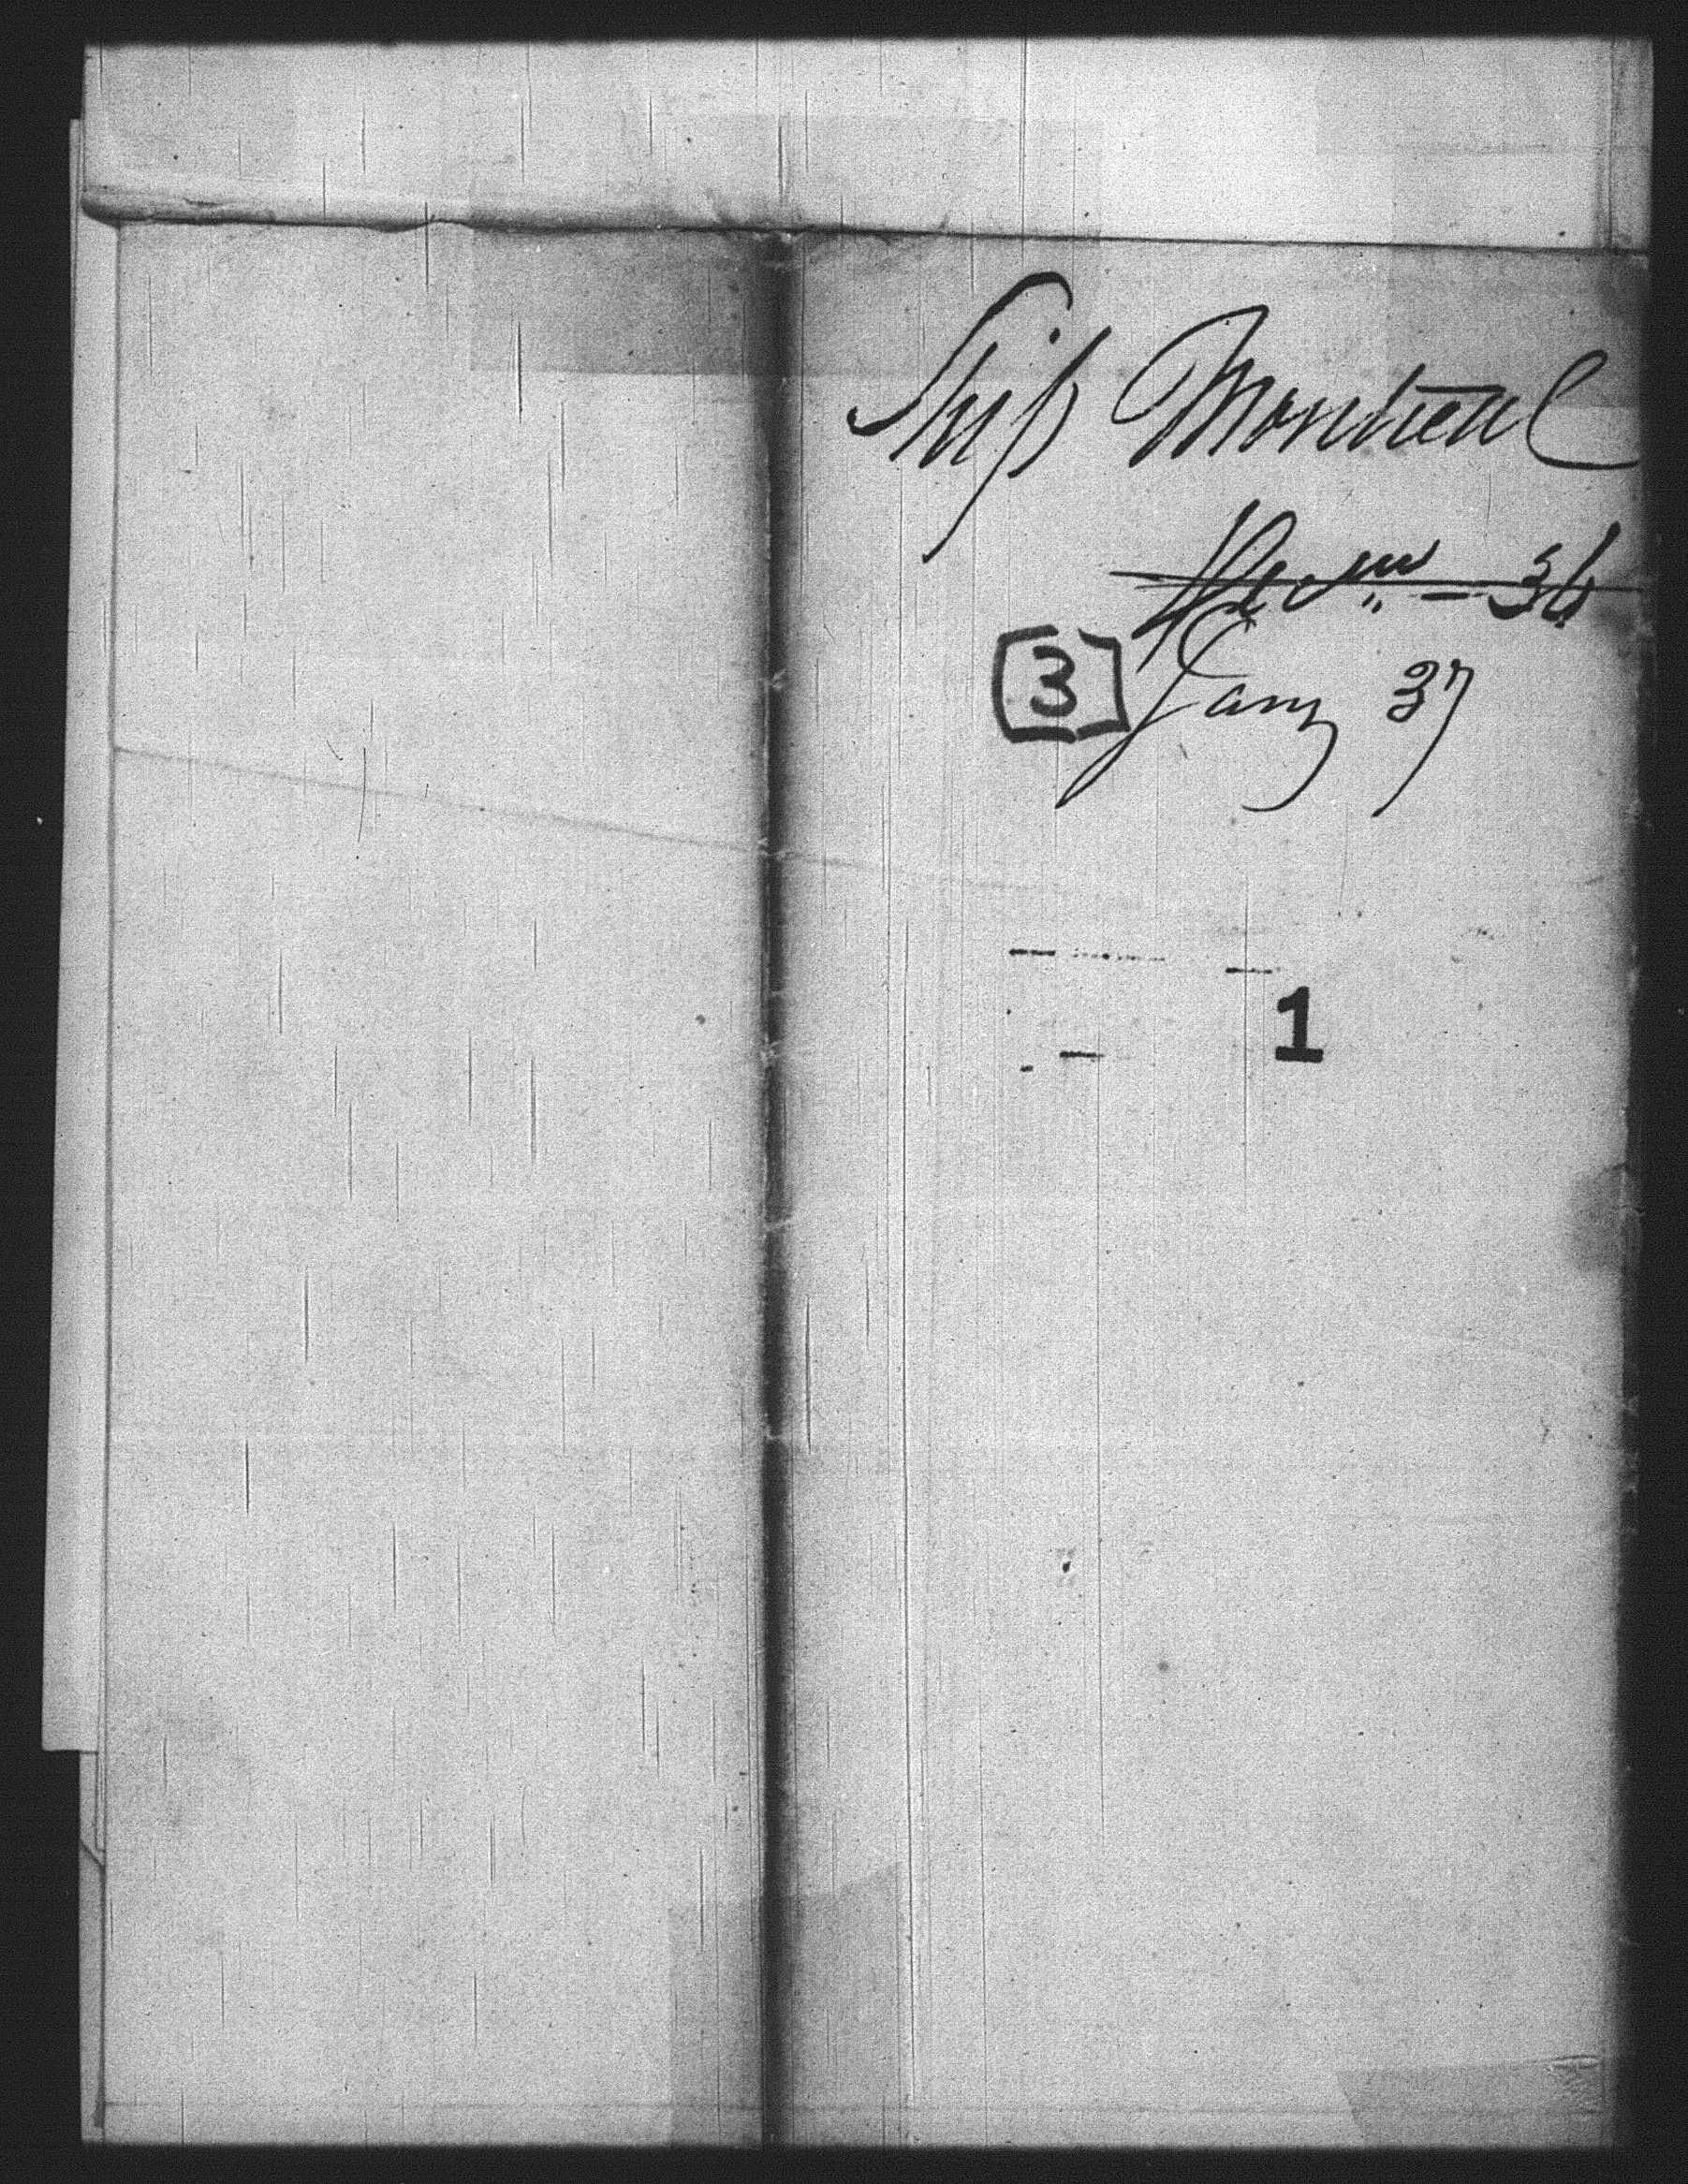 Ship Montreal
Decm - 36
[3] Jany 37
1